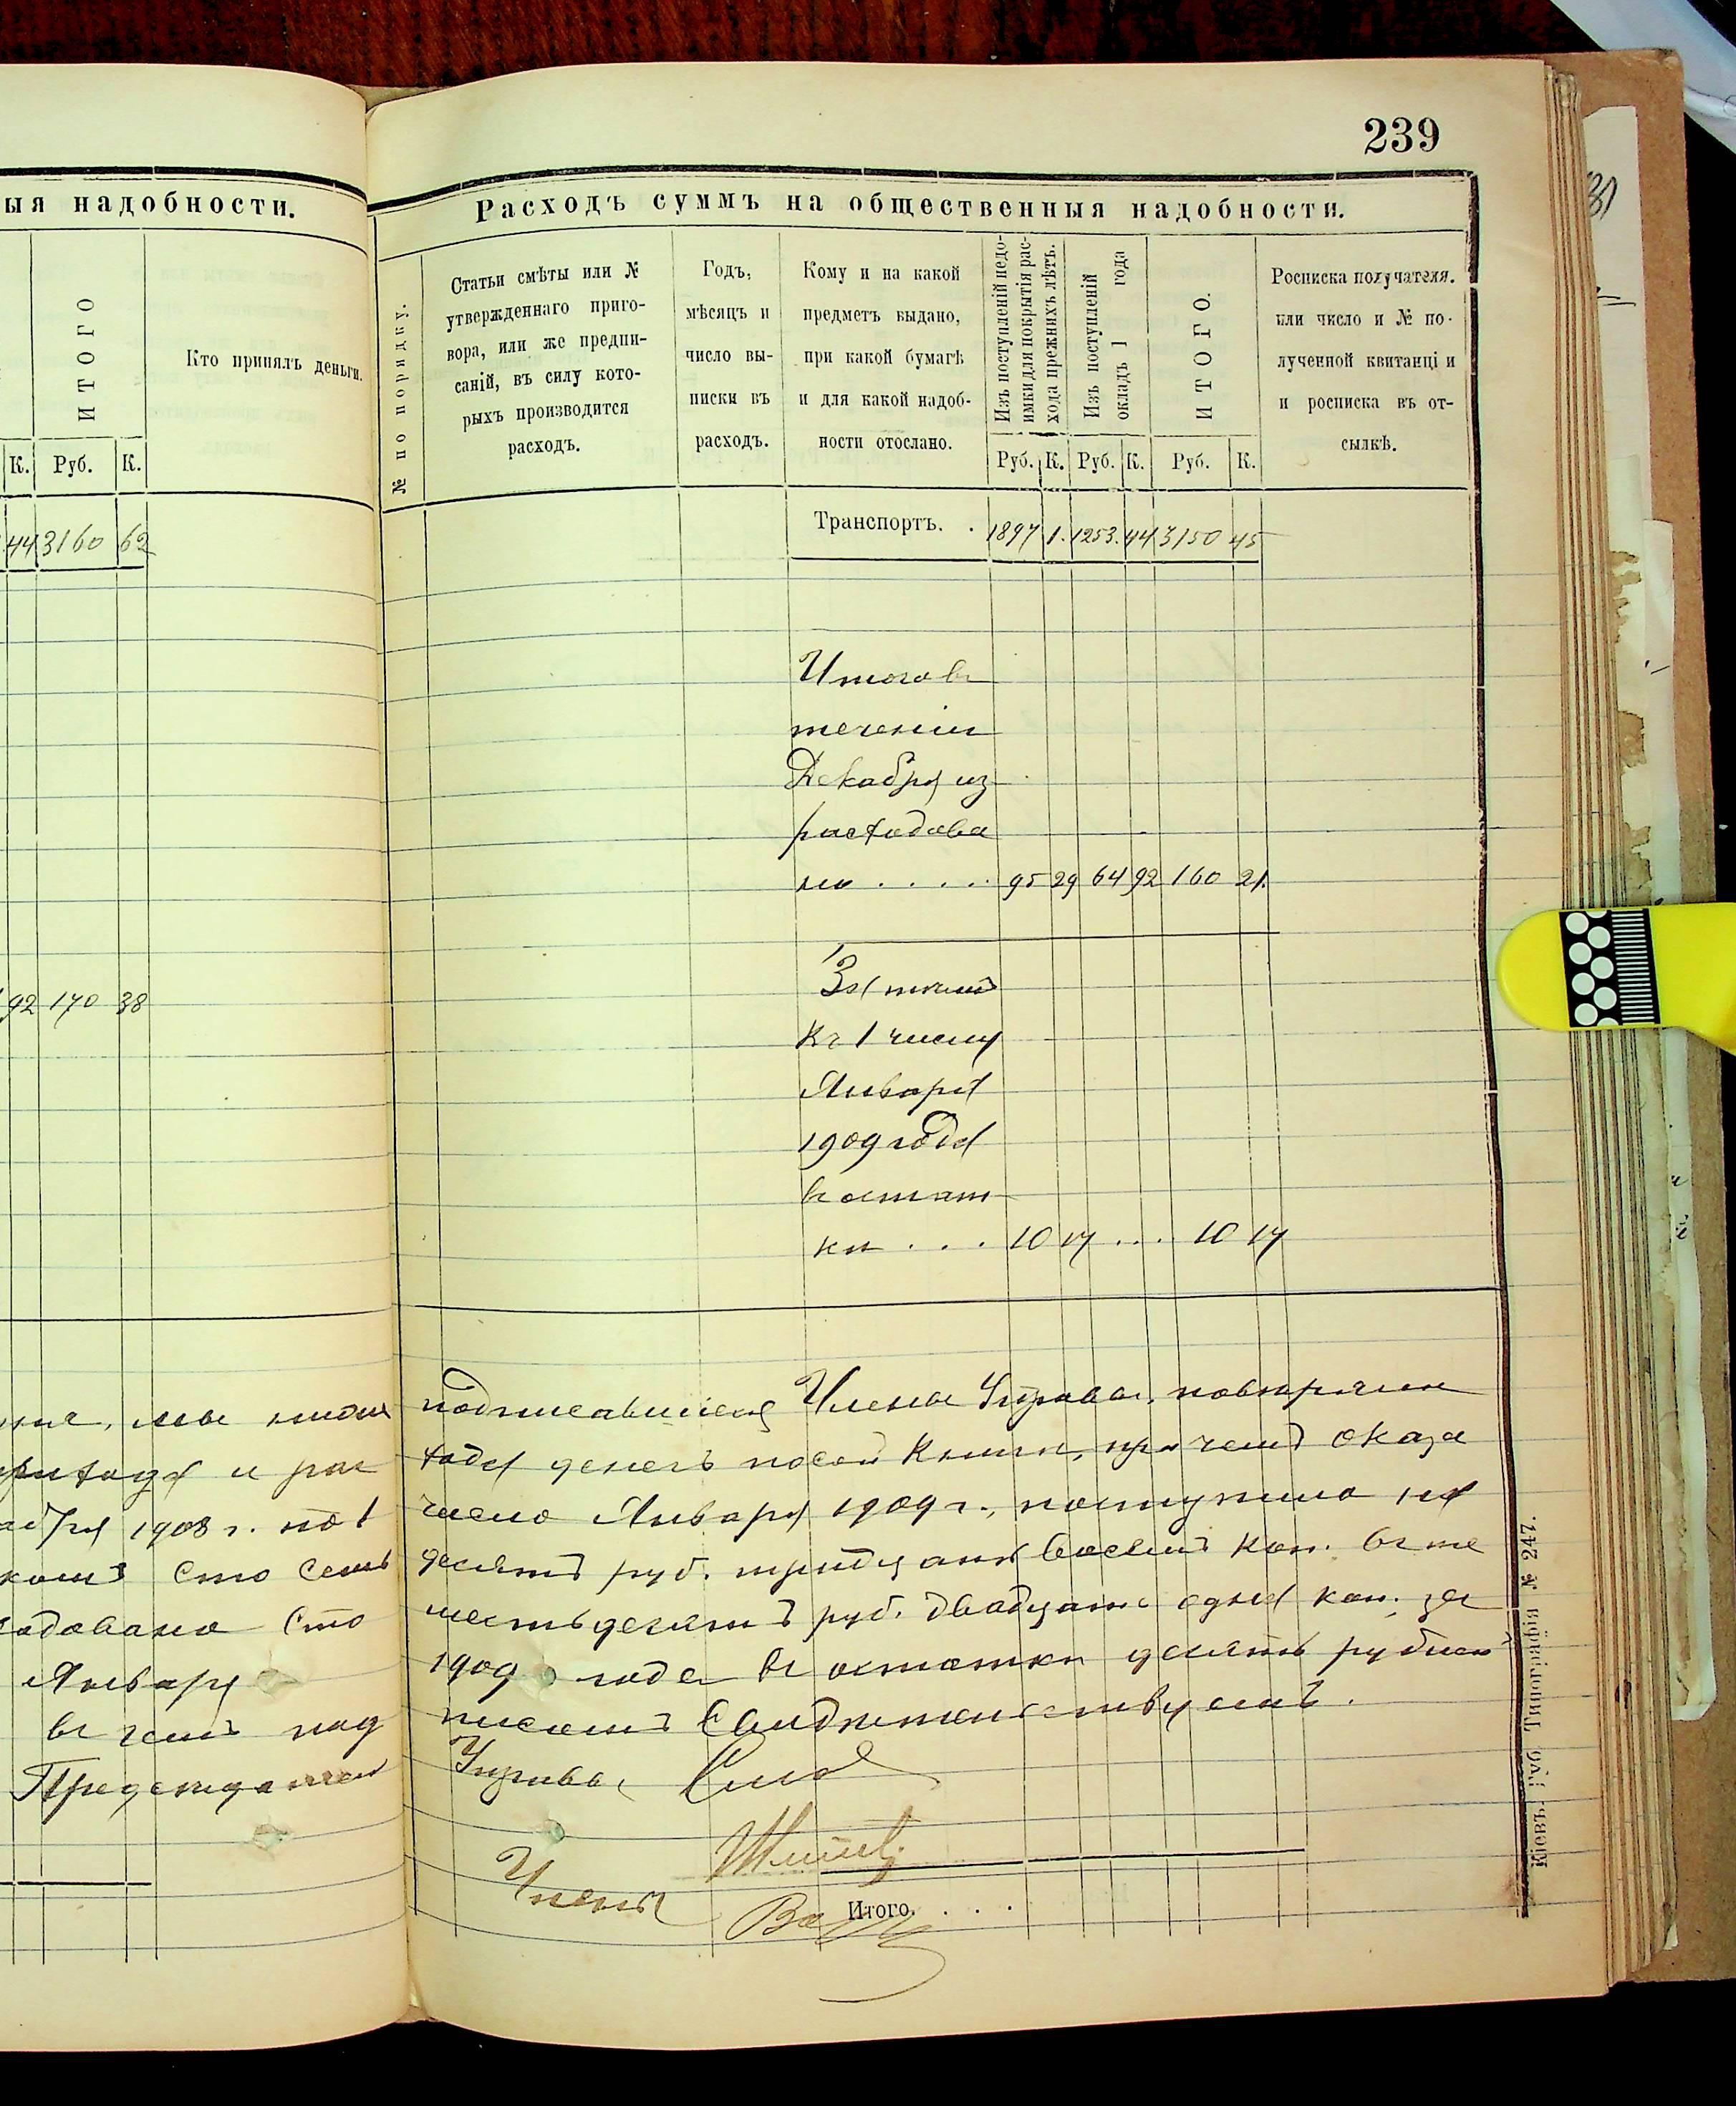 239
ыя надобности.
ИТОГО
Кто принялъ деньги.
К. Руб. К.
44 3160 62
92 170 38
Расходъ суммъ на общественныя надобности.
№ по порядку.
Статьи смѣты или №
утвержденнаго приго-
вора, или же предпи-
саній, въ силу кото-
рыхъ производится
расходъ.
Годъ,
мѣсяцъ и
число вы-
писки въ
расходъ.
Кому и на какой
предметъ выдано,
при какой бумагѣ
и для какой надоб-
ности отослано.
Изъ поступленій недо-
имки для покрытія рас-
хода прежнихъ лѣтъ.
Изъ поступленій
окладъ 1 года
ИТОГО.
Росписка получателя.
или число и № по-
лученной квитанціи
и росписка въ от-
сылкѣ.
Руб. К. Руб. К. Руб. К.
Транспортъ. . 1897 1. 1253. 44 3150 45
Итого въ
теченіи
Декабря из
расходова
но . . . . . 95 29 64 92 160 21.
Затемъ
къ 1 числу
Января
1909 года
въ остат
кѣ . . . 10 17 . . . 10 17
мы ниже подписавшіеся Члены Управы, повѣряли
прихода и рас хода денегъ по сей книги, при чемъ оказа
1908 г. по 1 число Января 1909 г., поступило на
Сто семь десятъ руб. тридцать восемь коп. въ те
Сто шестьдесятъ руб. двадцать одна коп. за
Января 1909 года въ остатки десять рублей
въ чемъ под писомъ Свидѣтельствуемъ.
Председатель Управы
Члены
Итого. . . . .
Кіевъ. Губ. Типографія № 247.